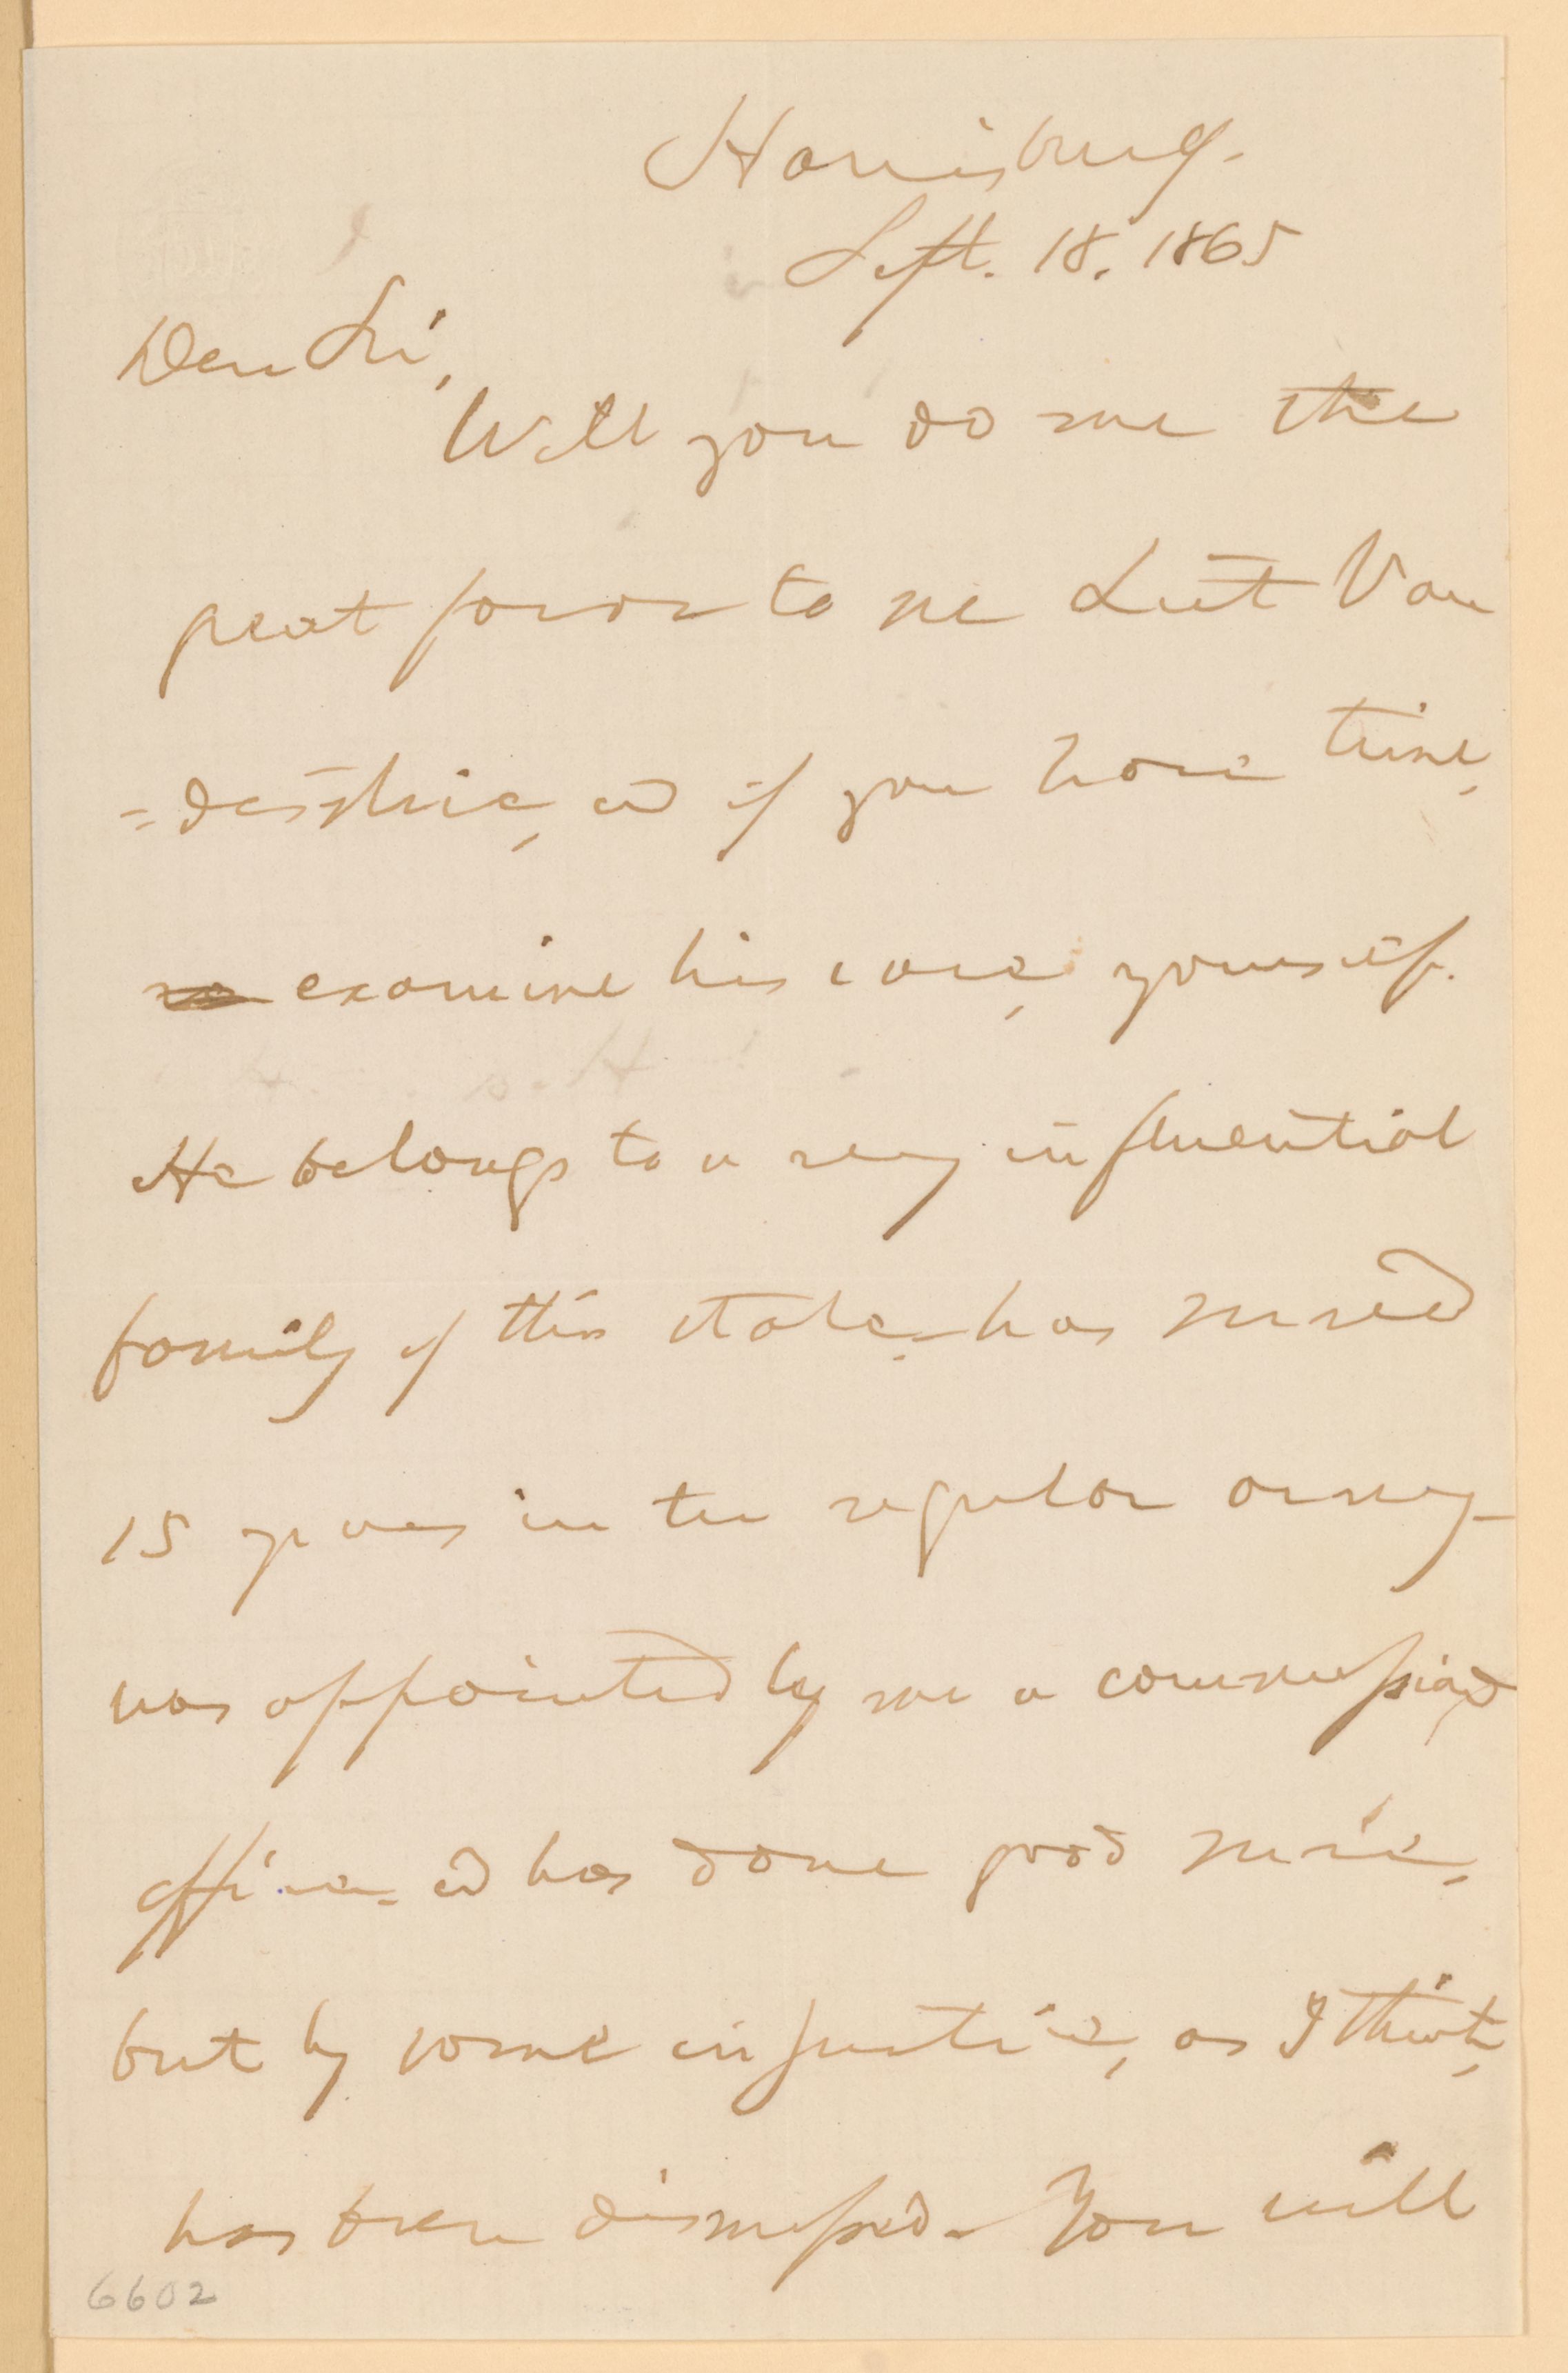 Harrisburg.
Sept. 18. 1865
Dear Sir,
Will you do me the
great favor to see Lieut Van
=derslice, and if you have time,
examine his case, yourself.
He belongs to a very influential
family of this state, has served
15 years in the regular army—
was appointed by me a commissioned
officer and has done good service,
but by some injustice, as I think,
has been dismissed. You will
6602